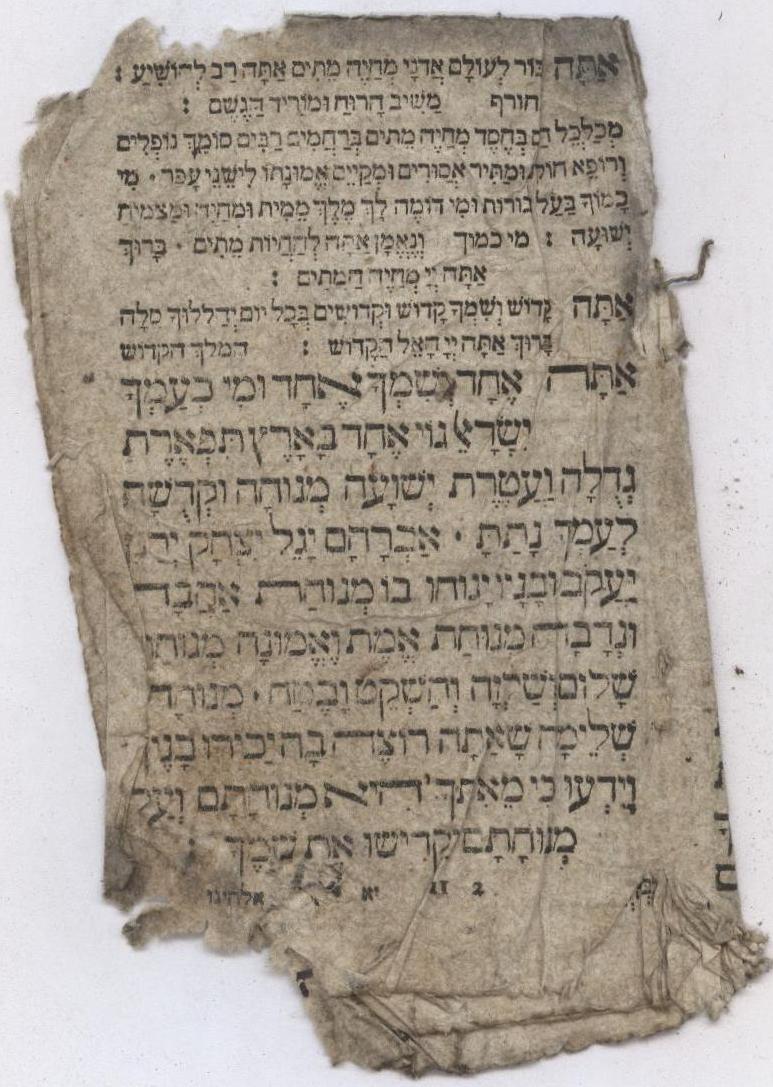 אַתָּה גִּבּוֹר לְעוֹלָם אֲדֹנָי מְחַיֶּה מֵתִים אַתָּה רַב לְהוֹשִׁיעַ :
חורף מַשִּׁיב הָרוּחַ וּמוֹרִיד הַגֶּשֶׁם :
מְכַלְכֵּל חַיִּם בְּחֶסֶד מְחַיֶּה מֵתִים בְּרַחֲמִים רַבִּים סוֹמֵךְ נוֹפְלִים
וְרוֹפֵא חוֹלִים וּמַתִּיר אֲסוּרִים וּמְקַיֵּים אֱמוּנָתוֹ לִישֵׁנֵי עָפָר · מִי
כָמוֹךָ בַּעַל גבוּרוֹת וּמִי דוֹמֶה לָּךְ מֶלֶךְ מֵמִית וּמְחַיֶּה וּמַצְמִיחַ
יְשׁוּעָה : מי כמוך וְנֶאֱמָן אַתָּה לְהַחֲיוֹת מֵתִים · בָּרוּךְ
אַתָּה יְיָ מְחַיֶּה הַמֵּתִים :
אַתָּה קָדוֹשׁ וְשִׁמְךָ קָדוֹשׁ וּקְדוֹשִׁים בְּכָל יוֹם יְהַלְלוּךָ סֶּלָה
בָּרוּךְ אַתָּה יְיָ הָאֵל הַקָּדוֹשׁ : המלך הקדוש
אַתָּה אֶחָד וְשִׁמְךָ אֶחָד וּמִי כְעַמְּךָ
יִשְׂרָאֵל גּוֹי אֶחָד בָּאָרֶץ תִּפְאֶרֶת
גְּדֻלָּה וַעֲטֶרֶת יְשׁוּעָה מְנוּחָה וּקְדֻשָּׁה
לְעַמְּךָ נָתַתָּ · אַבְרָהָם יָגֵל יִצְחָק יְרַנֵּן
יַעֲקֹב וּבָנָיו יָנוּחוּ בוֹ מְנוּחַת אַהֲבָה
וּנְדָבָה מְנוּחַת אֱמֶת וֶאֱמוּנָה מְנוּחַת
שָׁלוֹם וְשַׁלְוָה וְהַשְׁקֵט וָבֶטַח · מְנוּחָה
שְׁלֵימָה שָׁאַתָּה רוֹצֶה בָּהּ יַכִּירוּ בָנֶיךָ
וְיֵדְעוּ כִּי מֵאִתְּךָ הִיא מְנוּחָתָם וְעַל
מְנוּחָתָם יַקְדִּישׁוּ אֶת שְׁמֶךָ :
2 II יא אלהינו